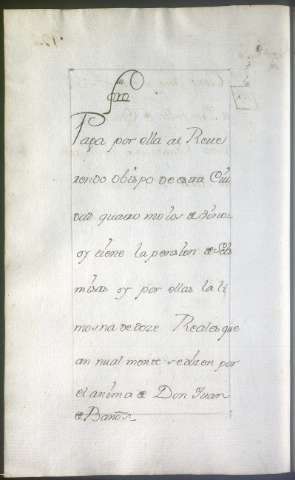 foro
Paga por ella al Reue
rendo obispo de esta Ciu
dad quatro moios de
y tiene la pension de seis
misas y por ellas la li
mosna de doze Reales que
annual mente se dizen por
el anima de Don Juan
de Baños